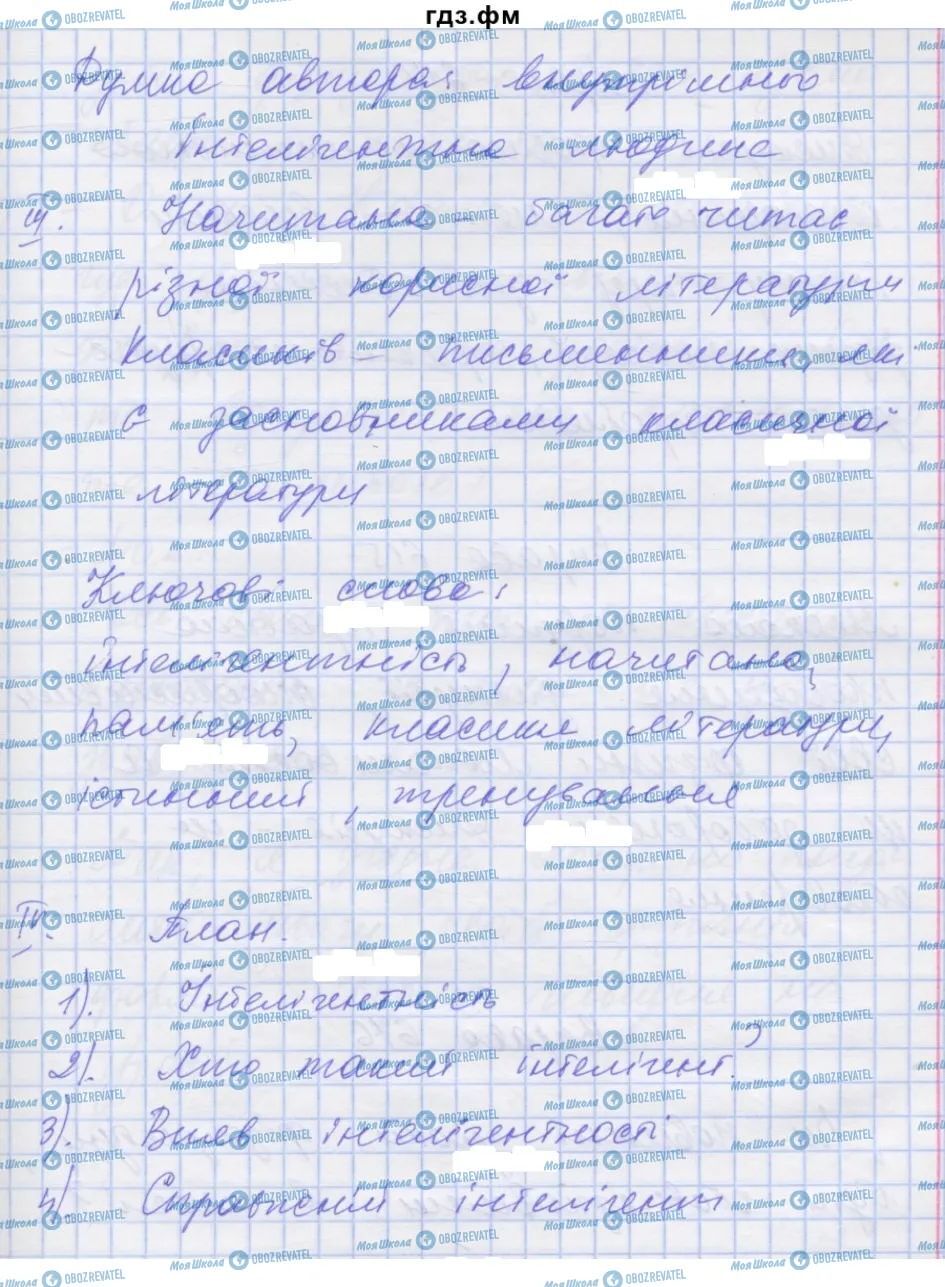 гдз.фм
Думка автора: внутрішньо
інтелігентна людина
Начитана – багато читає
різної корисної літератури
Класиків – письменники, які
є засновниками класичної
літератури
Ключові слова:
інтелігентність, начитана,
пам'ять, класики літератури,
істинний, тренувальня
IV. План.
1). Інтелігентність
2). Хто такий інтелігент?
3). Вияв інтелігентності
4). Справжній інтелігент